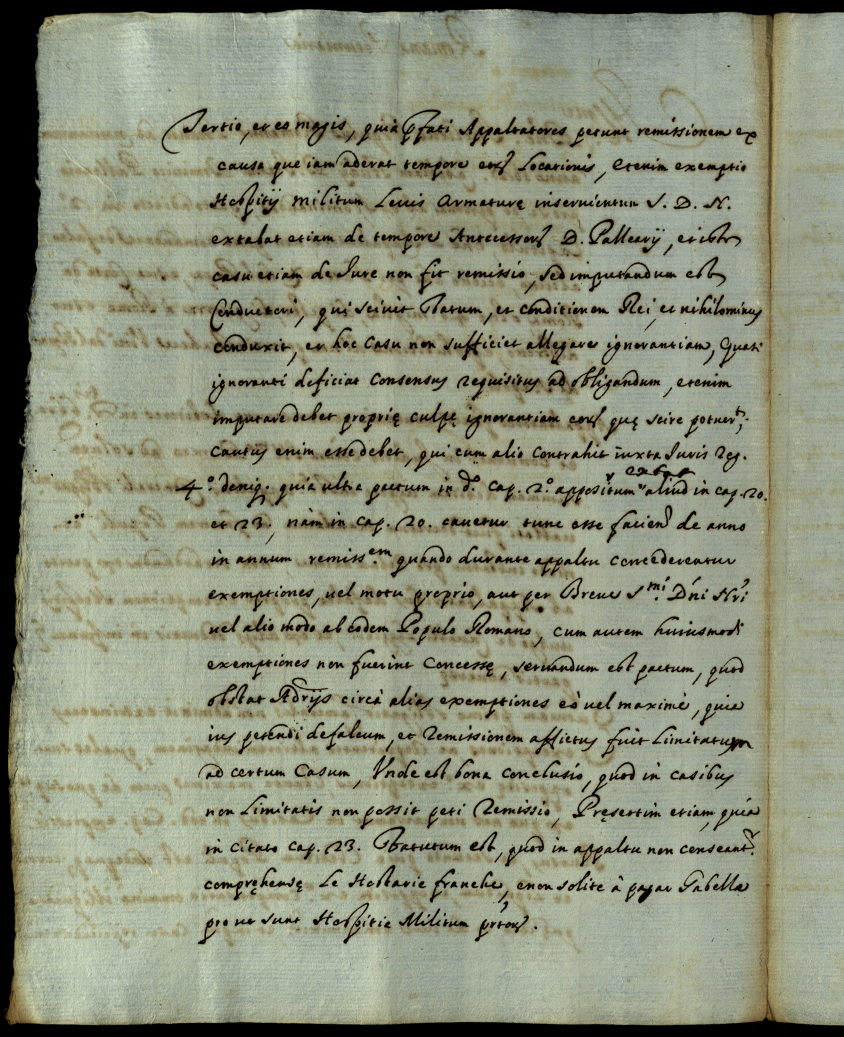 Tertio, et eo magis, quià pfati Appaltatores petunt remissionem ex
causa que iam aderat tempore eorũ Locationis, etenim exemptio
Hospitij militum Levis Armaturę inservientum S. D. N.
extabat etiam de tempore Antecessorũ D. Pallearij, et isto
casu etiam de Jure non fit remissio, sed imputandum est
Conductori, qui scivit statum, et conditionem Rei, et nihilominus
conduxit, et hoc casu non sufficiet allegare ignorantiam, Quasi
ignoranti deficiat Consensus requisitus ad obligandum, etenim
imputare debet proprię culpę ignorantiam eorũ quę scire potuert;
Cautus enim esse debet, qui cum alio contrahit iuxta Juris Reg.
4.º deniq. quia ultra pactum in d.º cap. 2.º appositum extat aliud in cap. 20.
et 23, nàm in cap. 20. cavetur tunc esse facien. de anno
in annum remiss.em quando durante appaltu concederentur
exemptiones, vel motu proprio, aut per Breve S.mi Dñi Nri
vel alio modo ab eodem Populo Romano, cum autem huiusmodi
exemptiones non fuerint Concessę, servandum est pactum, quod
obstat Adrijs circà alias exemptiones eò vel maximè, quia
ius petendi defalcum, et Remissionem affictus fuit Limitatum
ad certum Casum, Unde est bona conclusio, quod in casibus
non Limitatis non possit peti Remissio, Pręsertim etiam, quia
in citato cap. 23. statutum est, quod in appaltu non censeant.
compręhensę Le Hostarie franche, e non solite à pagar Gabella
pro ut sunt Hospitie Militum pŕtorũ.